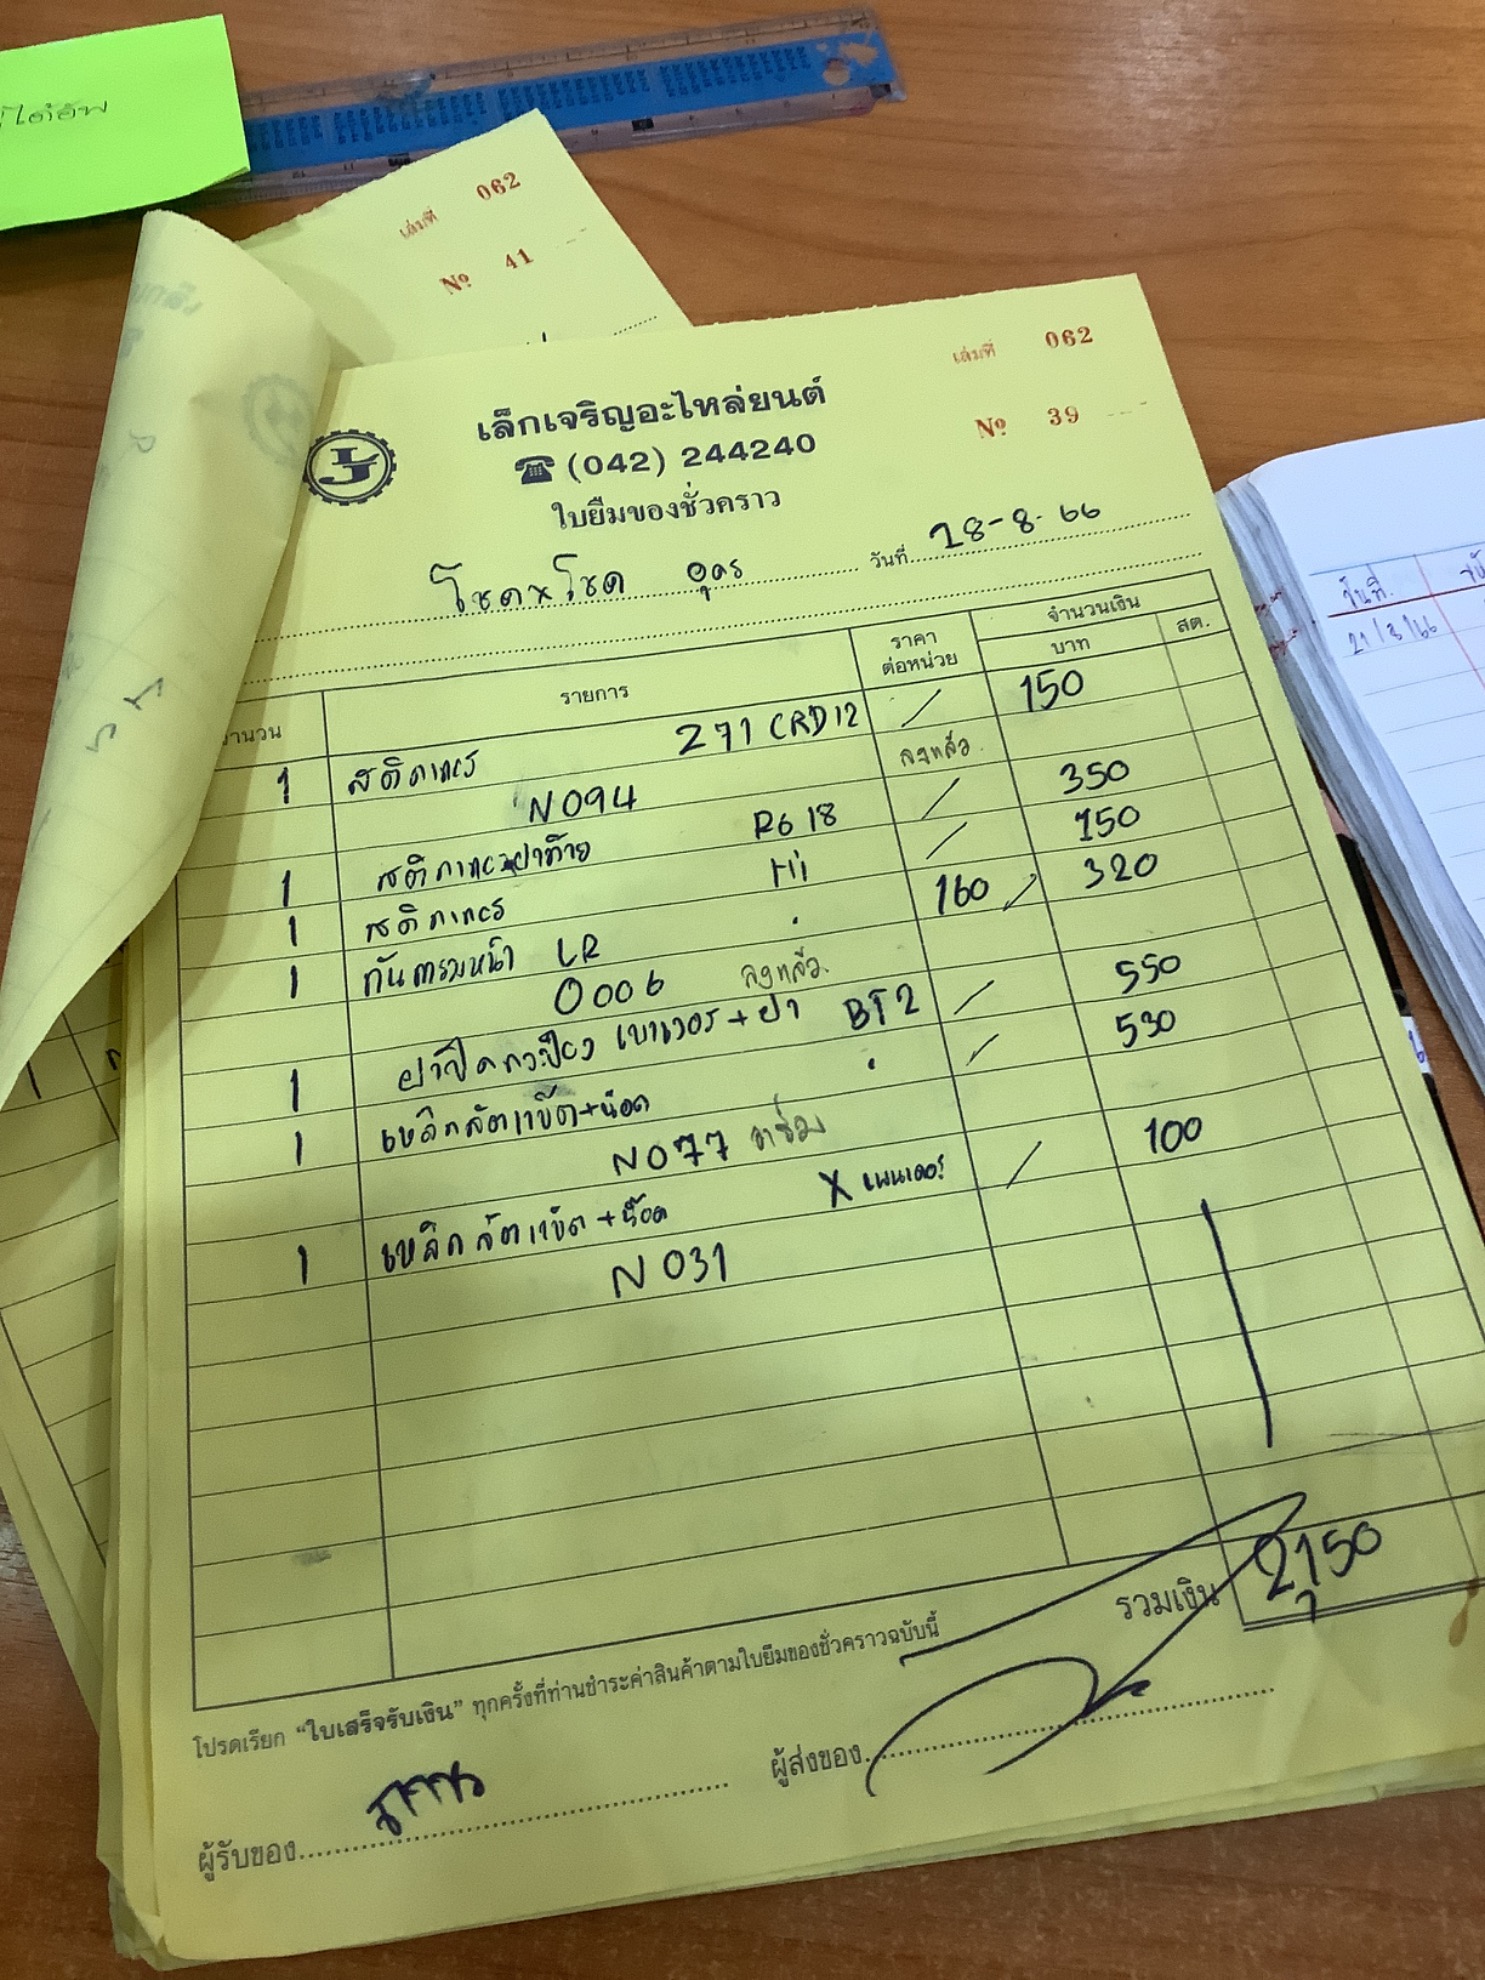 ได้อัพ
เล่มที่ 062
Nº 41
เล่มที่ 062
Nº 39
เล็กเจริญอะไหล่ยนต์
☎ (042) 244240
ใบยืมของชั่วคราว
โชคxโชค อุดร วันที่ 28-8-66
จำนวน รายการ ราคาต่อหน่วย จำนวนเงิน บาท สต.
1 สติกเกอร์ 271 CRD12 / 150
N094 ลงแล้ว
1 สติกเกอร์ฝาท้าย R618 / 350
1 สติกเกอร์ / 150
1 กันครบหน้า LR 160 / 320
0006 ลงแล้ว
1 ฝาปิดกระป๋อง เบาเวอร์+ฝา BT2 / 550
1 เหล็กลัดแข้ต+น็อต / 530
N077
1 เหล็กลัดแข้ต+น็อต X / 100
N031
รวมเงิน 2,150
โปรดเรียก “ใบเสร็จรับเงิน” ทุกครั้งที่ท่านชำระค่าสินค้าตามใบยืมของชั่วคราวฉบับนี้
ผู้รับของ
ผู้ส่งของ
วันที่.
21/8/66